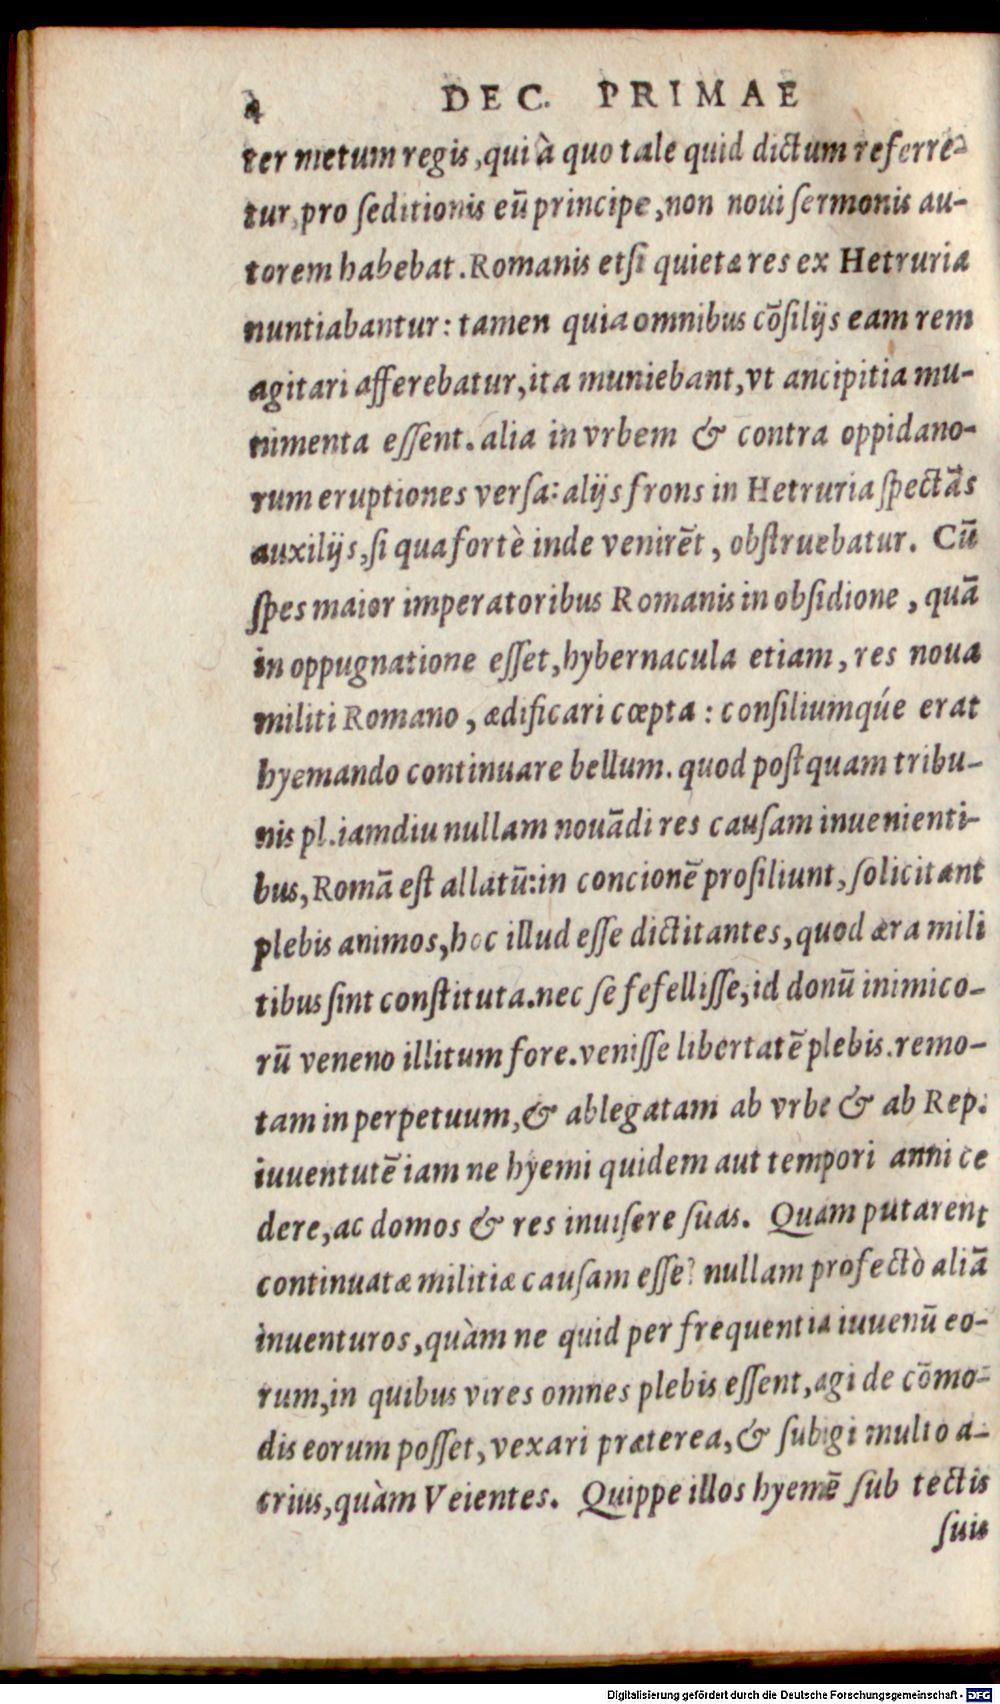 4 DEC. PRIMAE
ter metum regis, qui à quo tale quid dictum referre-
tur, pro seditionis eū principe, non noui sermonis au-
torem habebat. Romanis etsi quietæ res ex Hetruria
nuntiabantur: tamen quia omnibus cōsilijs eam rem
agitari afferebatur, ita muniebant, vt ancipitia mu-
nimenta essent. alia in vrbem & contra oppidano-
rum eruptiones versa: alijs frons in Hetruria spectās
auxilijs, si qua fortè inde venirēt, obstruebatur. Cū
spes maior imperatoribus Romanis in obsidione, quā
in oppugnatione esset, hybernacula etiam, res noua
militi Romano, ædificari cœpta: consiliumqúe erat
hyemando continuare bellum. quod postquam tribu-
nis pl. iamdiu nullam nouādi res causam inuenienti-
bus, Romā est allatū: in concionē prosiliunt, solicitant
plebis animos, hoc illud esse dictitantes, quod æra mili
tibus sint constituta. nec se fefellisse, id donū inimico-
rū veneno illitum fore. venisse libertatē plebis. remo-
tam in perpetuum, & ablegatam ab vrbe & ab Rep.
iuuentutē iam ne hyemi quidem aut tempori anni ce
dere, ac domos & res inuisere suas. Quam putarent
continuatæ militiæ causam esse? nullam profectò aliā
inuenturos, quàm ne quid per frequentia iuuenū eo-
rum, in quibus vires omnes plebis essent, agi de cōmo-
dis eorum posset, vexari præterea, & subigi multo a-
crius, quàm Veientes. Quippe illos hyemē sub tectis
suis
Digitalisierung gefördert durch die Deutsche Forschungsgemeinschaft - DFG